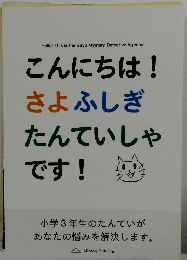 Hello! This is the Sayo Mystery Detective Agency
こんにちは！
さよ ふしぎ
たんていしゃ
です！
小学3年生のたんていが
あなたの悩みを解決します。